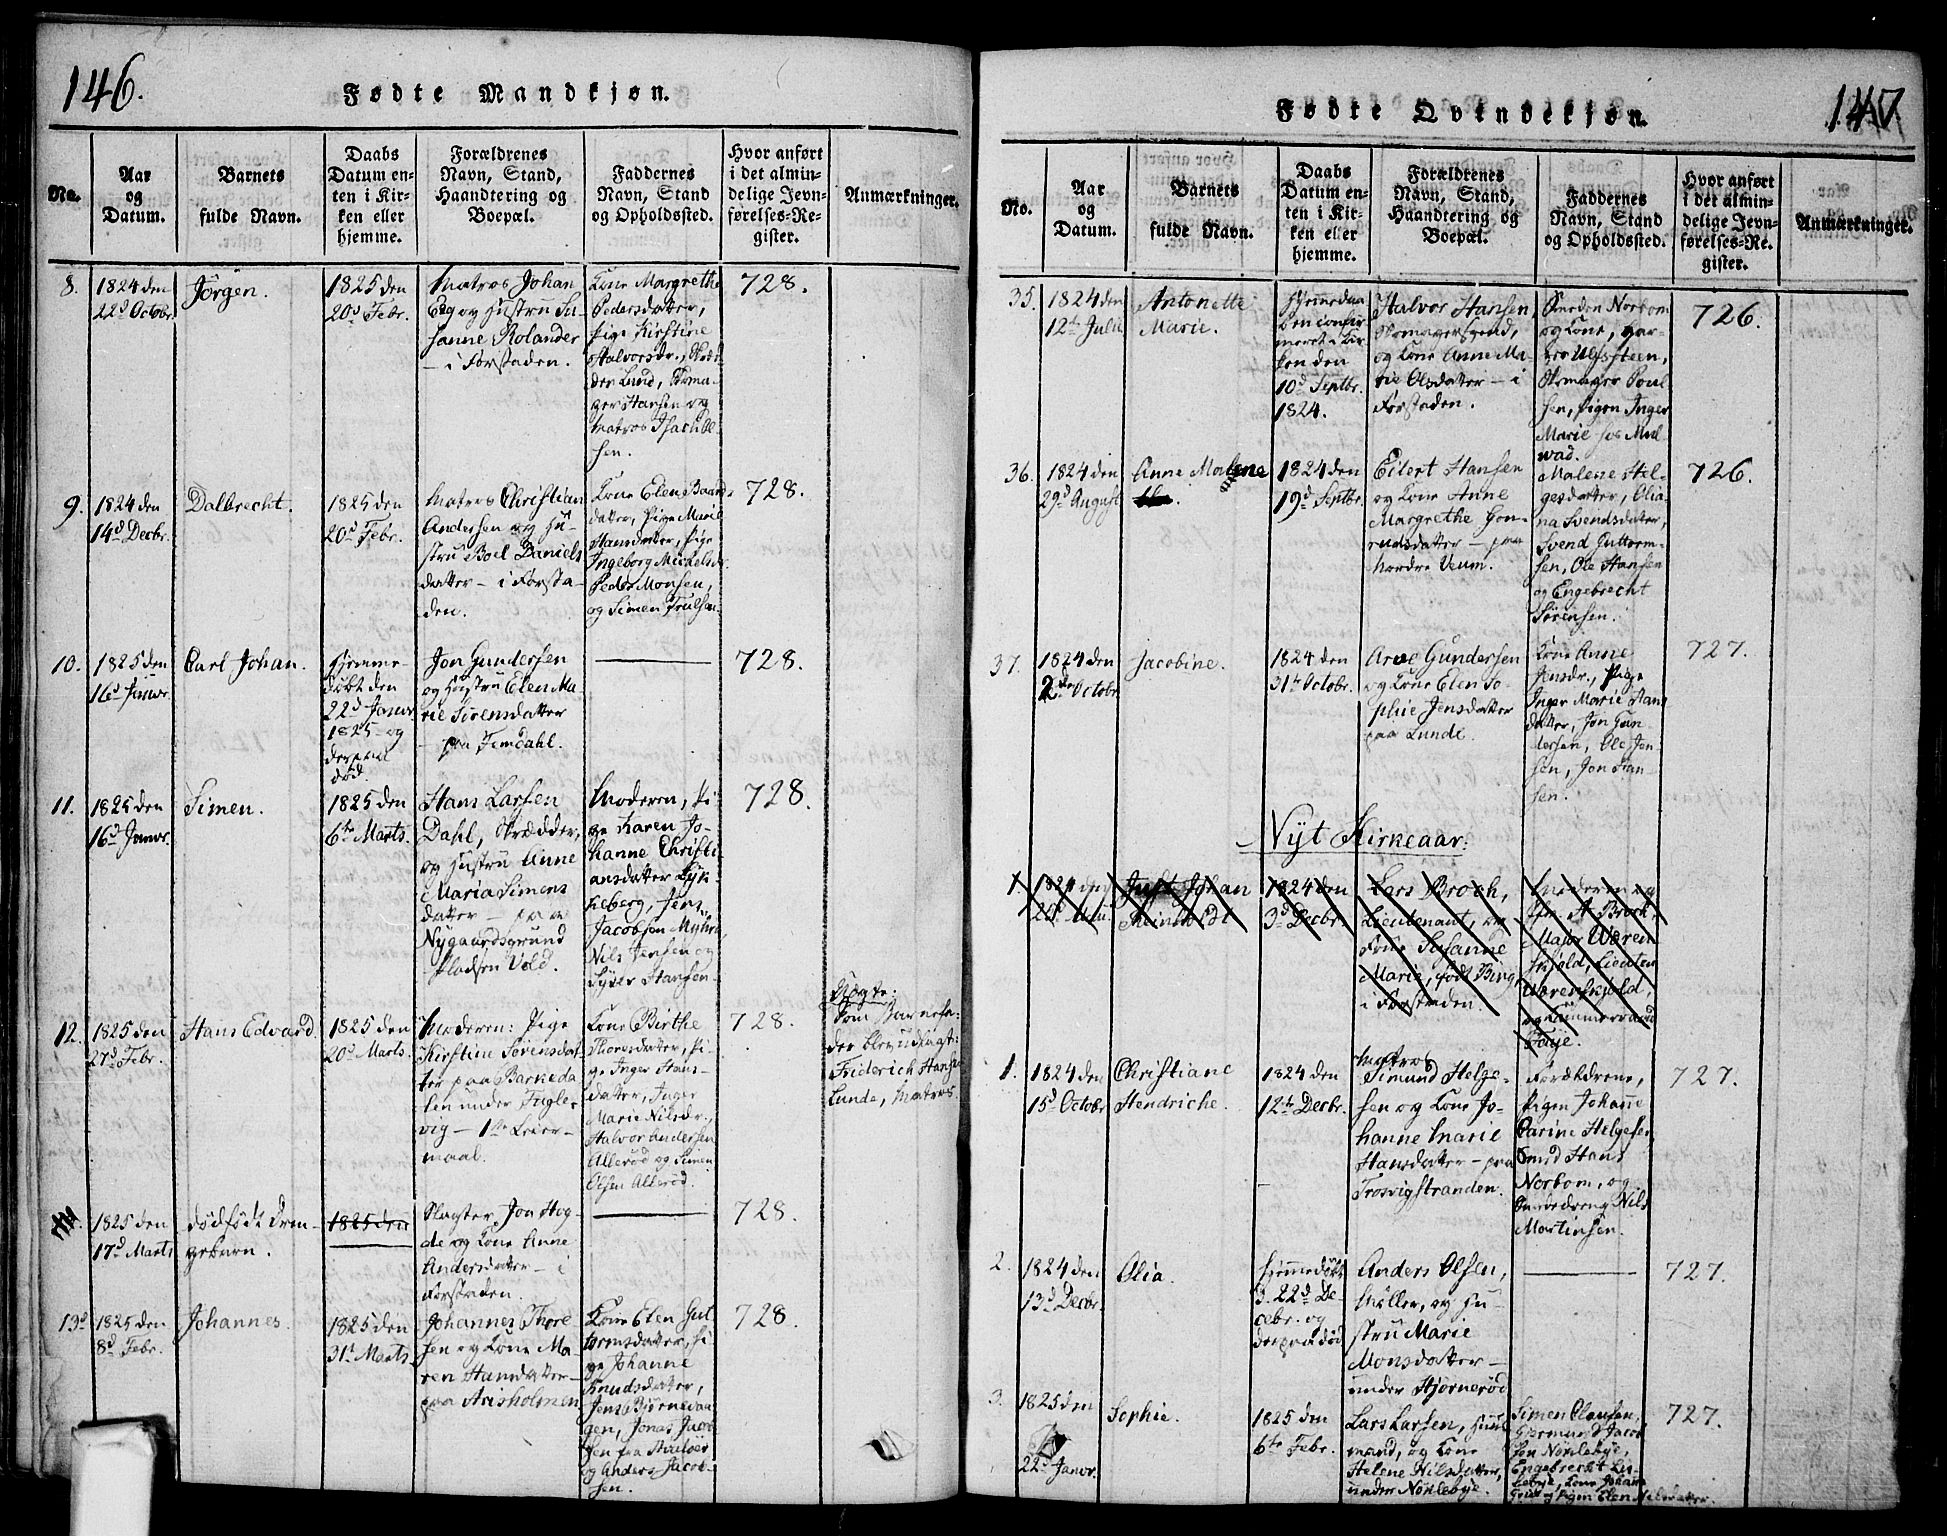 146.
Fødte Mandkjøn.
No.
Aar
og
Datum.
Barnets
fulde Navn.
Daabs
Datum en-
ten i Kir-
ken eller
hjemme.
Forældrenes
Navn, Stand,
Haandtering og
Boepæl.
Faddernes
Navn, Stand
og Opholdssted.
Hvor anført
i det almin-
delige Jevn-
førelses-Re-
gister.
Anmærkninger.
8.
1824 den
22d Octobr.
Jørgen.
1825 den
20d Febr.
Matros Johan
Eeg og Hustru Su-
sanne Rolander
- i Forstaden.
Kone Margrethe
Pedersdatter,
Pige Kirstine
Halvorsdr.,
Lund, Skoma-
ger Hansen og
Matros Isach Ol-
sen.
728.
9.
1824 den
14d Decbr.
Dalbrecht.
1825 den
20d Febr.
Matros Christian
Andersen og Hu-
stru Boel Daniels
datter - i Forsta-
den.
Kone Elen Baards
datter, Pige Marie
Hansdatter, Pige
Ingeborg Michelsdr.
Peder Monsen,
og Simen Trulsen.
728.
10.
1825 den
16d Janvr.
Carl Johan.
Hjemme-
døbt den
22d Janvr
1825 - og
derpaa
død.
Jon Gundersen
og Hustru Elen Ma-
rie Sørensdatter
- paa Femdahl.
728.
11.
1825 den
16d Janvr.
Simen.
1825 den
6te Marts.
Hans Larsen
Dahl, Skrædder,
og Hustru Anne
Maria Simens
datter - paa
Nygaardsgrund
Pladsen Vold.
Moderen, Pi-
ge Karen Jo-
hanne Christi-
ansdatter Lyk-
keberg, Jens
Jacobsen Myhre,
Nils Jensen og
Syver Hansen.
728.
12.
1825 den
27d Febr.
Hans Edvard.
1825 den
20d Marts.
Moderen: Pige
Kirstine Sørensdat-
ter paa Barkeda-
len under Fugle-
vig - 1ste Leier-
maal.
Kone Birthe
Thoresdatter, Pi-
ge Inger Hans-
datter, Inger
Marie Nilsdr.,
Halvor Andersen
Allerød og Simen
Olsen Allerød.
728.
Uægte.
Som Barnefa-
der blev udlagt:
Friderich Hansen
Lunde, Matros.
1825 den
17d Marts
dødfødt Dren-
gebarn.
1825 den
Slagter Jon Hog-
de og Kone Anne
Andersdatter - i
Forstaden.
728.
13d
1825 den
8d Febr.
Johannes.
1825 den
31t Marts.
Johannes Thore
sen og Kone Ma
ren Hansdatter -
paa Arisholmen
Kone Elen Gut
tormsdatter, Pi
ge Johanne
Knudsdatter,
Jens Bjørneaa
gen, Jonas Jacob
sen fra
og Anders Jacob-
sen.
728.
147
Fødte Qvindekjøn.
No.
Aar
og
Datum.
Barnets
fulde Navn.
Daabs
Datum en-
ten i Kir-
ken eller
hjemme.
Forældrenes
Navn, Stand,
Haandtering og
Boepæl.
Faddernes
Navn, Stand
og Opholdssted.
Hvor anført
i det almin-
delige Jevn-
førelses-Re-
gister.
Anmærkninger.
35.
1824 den
12te Julii
Antonette
Marie.
Hjemmedøbt
confir
meret i Kir-
ken den
10d Septbr.
1824.
Halvor Hansen,
Skomagersvend,
og Kone Anne Ma-
rie Olsdatter - i
Forstaden.
Norbom
og Kone, Gar-
ver Ulfsteen,
Skomager Poul-
sen, Pigen Inger
Marie hos Mul-
wad.
726.
36.
1824 den
29d August
Anne Malene
.
1824 den
19d Septbr.
Eilert Hansen
og Kone Anne
Margrethe Gon-
rudsdatter - paa
Nordre Veum.
Malene Hel-
gesdatter, Olia-
na Svendsdatter,
Svend Guttorm-
sen, Ole Hansen
og Engebrecht
Sørensen.
726.
37.
1824 den
2den Octobr.
Jacobine.
1824 den
31te Octobr.
Arve Gundersen
og Kone Elen So-
phie Jensdatter
paa Lunde.
Kone Anne
Jensdr., Pige
Inger Marie Hans
datter, Jon Gun-
dersen, Ole Jen-
sen, Jon Han-
sen.
727.
Nyt Kirkeaar.
1.
1824 den
Just Johan
Meinhardt
1824 den
3d Decbr.
Lars Broch,
Lieutenant, og
Kone Susanne
Marie, født Bing,
i Forstaden.
Moderen og
A. Broch,
Major Wæren
skjold, Lieuten.
Wærenskjold,
og Kammerraad
Faye.
1.
1824 den
15d Octobr
Christiane
Hendriche.
1824 den
12te Decbr.
Matros
Simund Helge-
sen og Kone Jo-
hanne Marie
Hansdatter - paa
Trosvigstranden.
Forældrene,
Pigen Johanne
Carine Helgesen,
Smed Hans
Norbom, og
Smededreng Nils
Martinsen.
727.
2.
1824 den
13d Decbr.
Olia.
Hjemmedøbt
d. 22d De-
cebr. og
derpaa død
Anders Olsen,
Møller, og Hu-
stru Marie
Monsdatter -
under Hjørnerød
727.
3.
1825 den
22d Janvr.
Sophie.
1825 den
6te Febr.
Lars Larsen, Huus-
mand, og Kone
Helene Nilsdatter,
under Nørlebye.
Simen Clausen,
Gjermund Jacob
sen Nørlebye,
Engebrecht Lis-
lebye, Kone Johanne
og Pigen Elen Nilsdatter.
727.